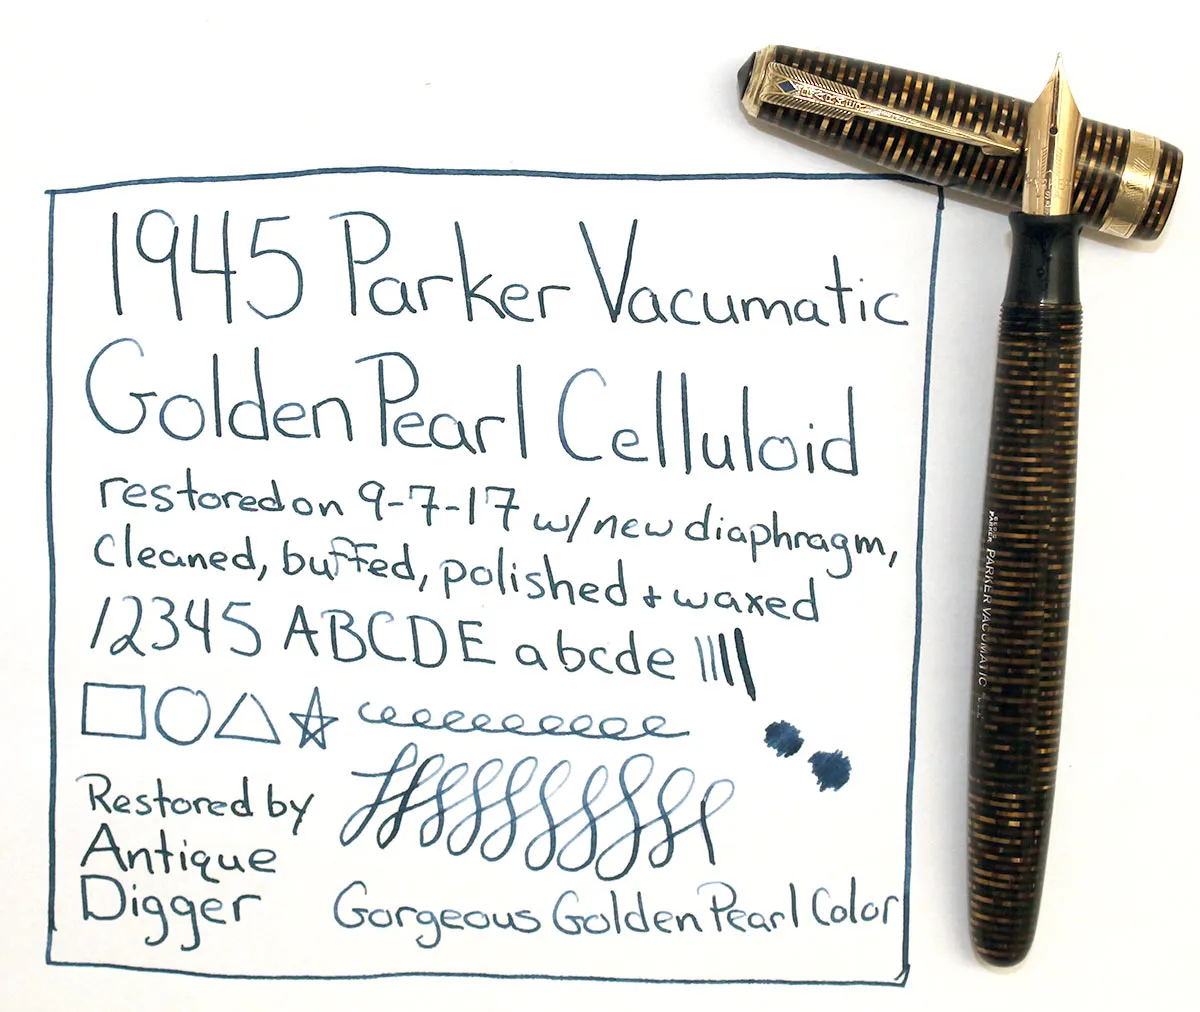 1945 Parker Vacumatic
Golden Pearl Celluloid
restored on 9-7-17 w/ new diaphragm,
cleaned, buffed, polished + waxed
12345 ABCDE abcde
Restored by
Antique
Digger
Gorgeous Golden Pearl Color
PARKER
PARKER VACUMATIC